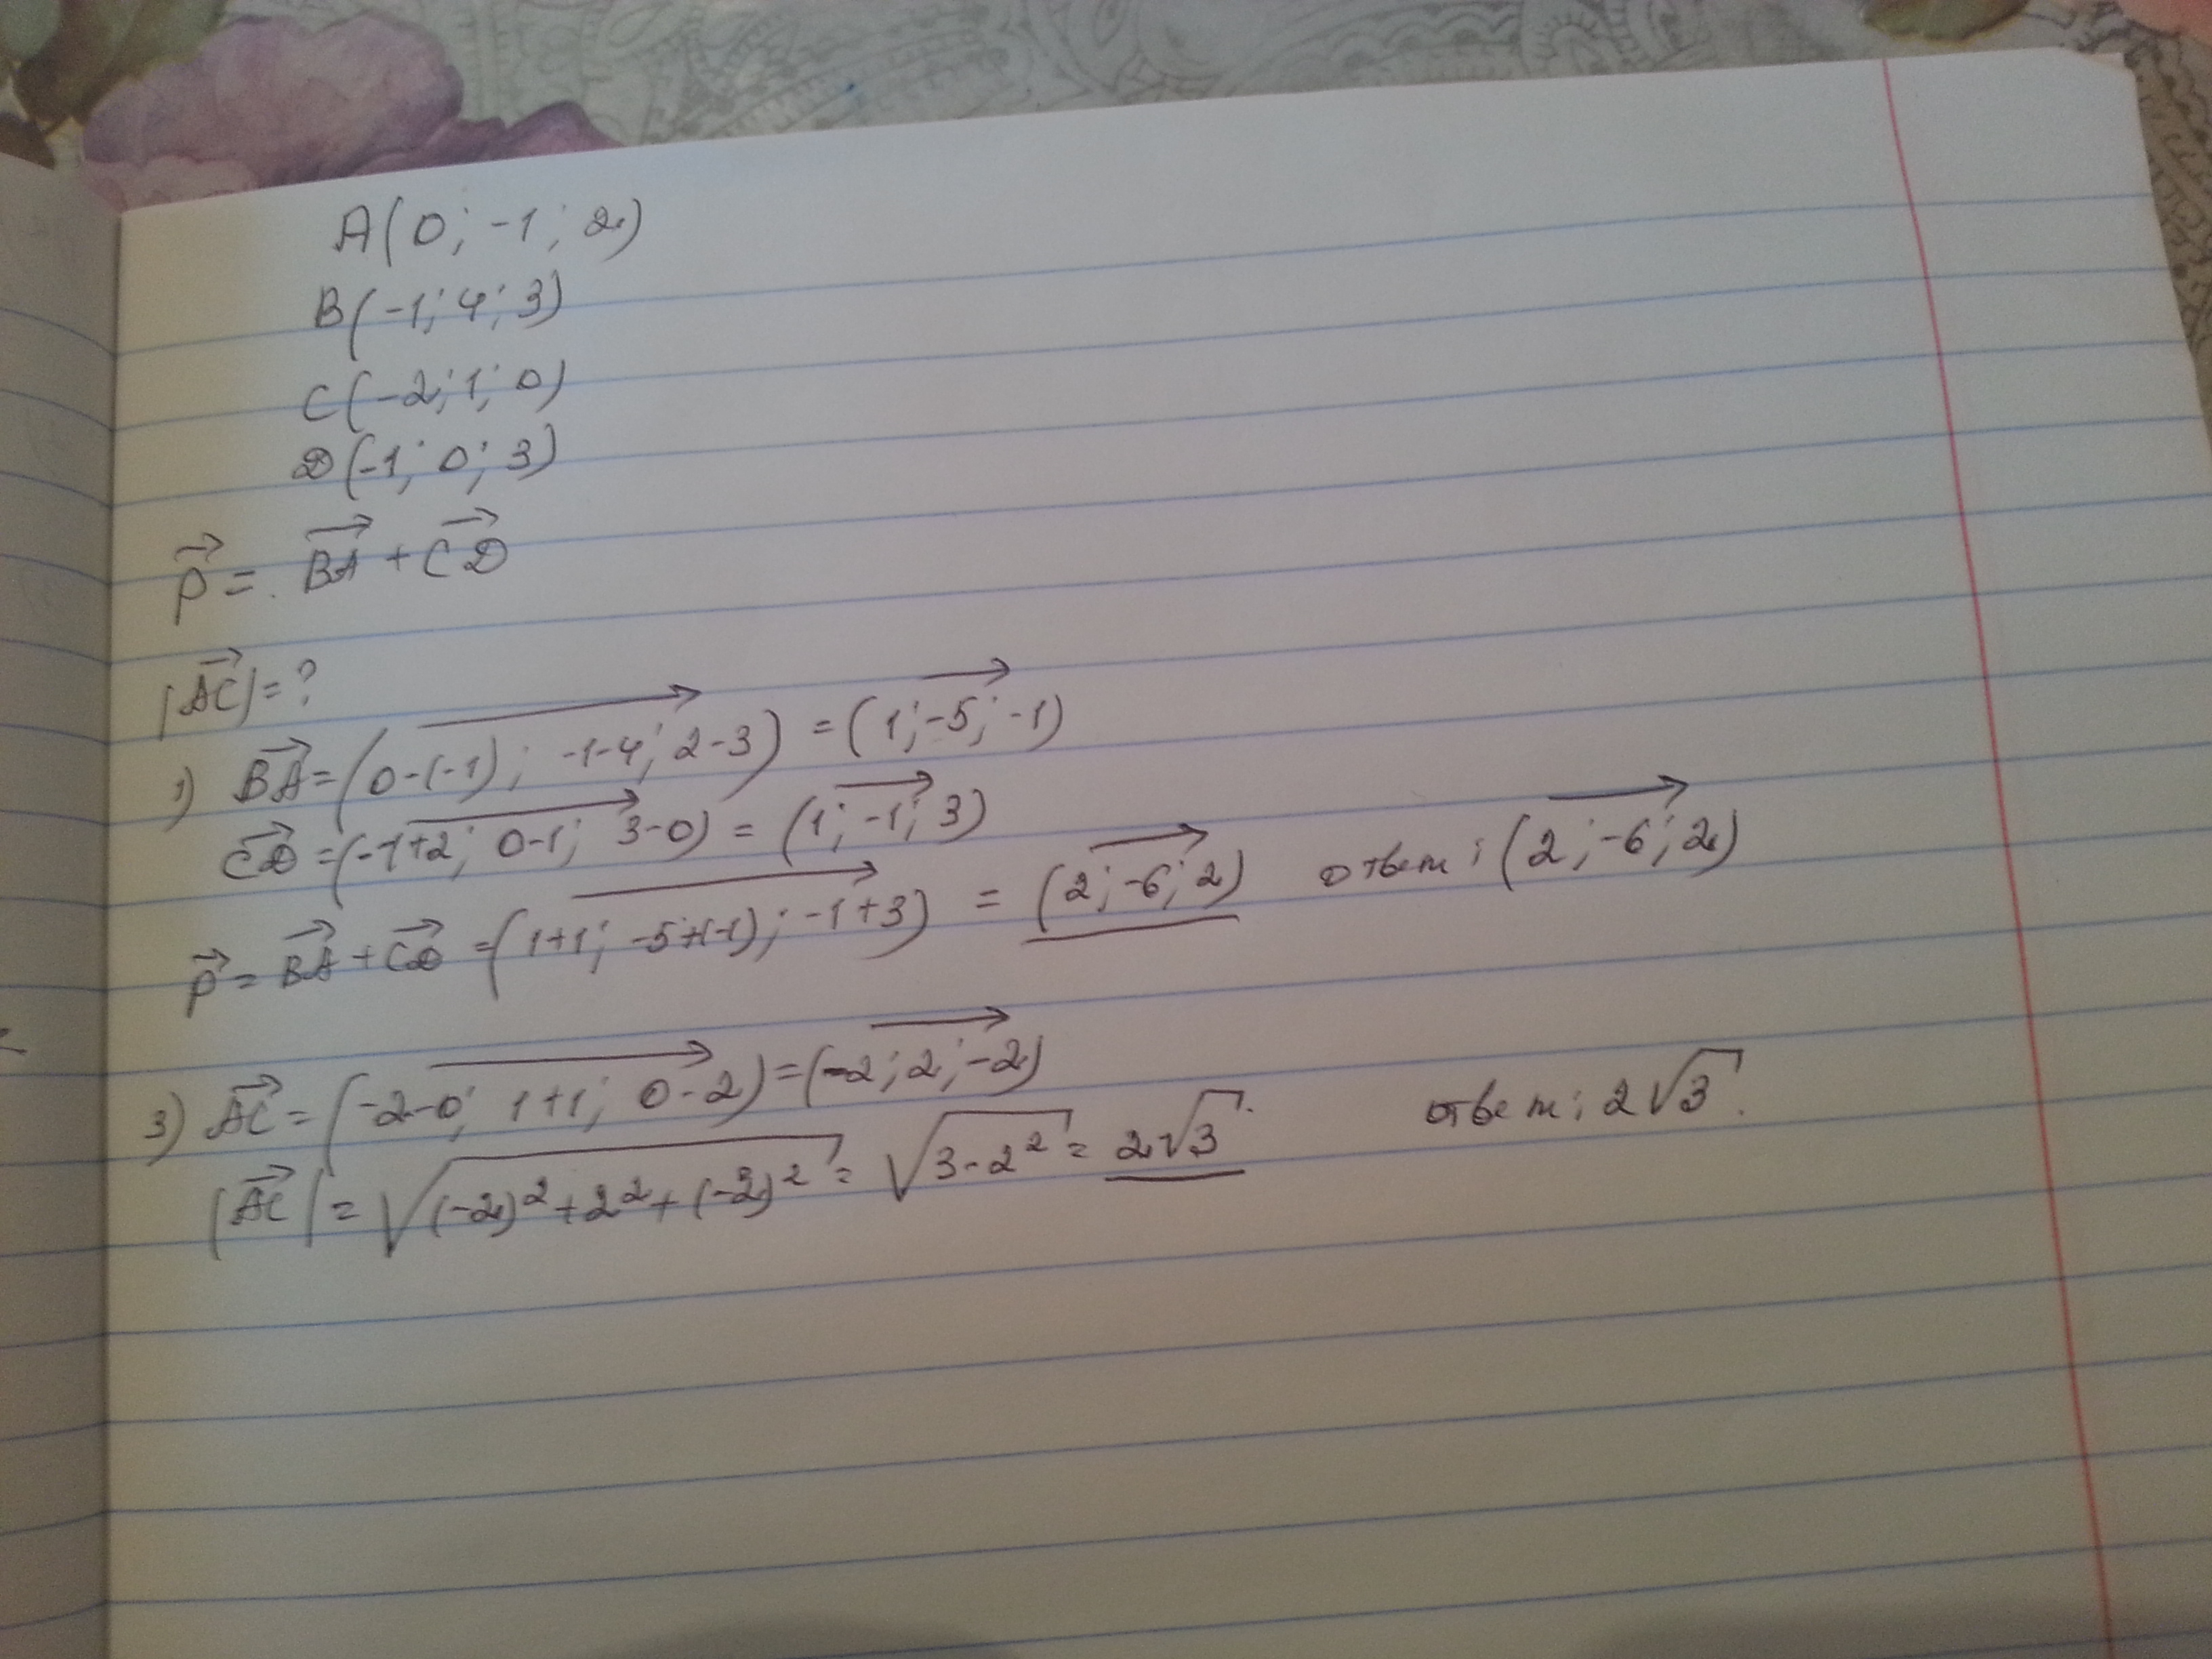 A(0; -1; 2)
B(-1; 4; 3)
C(-2; 1; 0)
D(-1; 0; 3)
p⃗ = BA⃗ + CD⃗
|AC⃗| = ?
1) BA⃗ = (0-(-1); -1-4; 2-3) = (1; -5; -1)
CD⃗ = (-1+2; 0-1; 3-0) = (1; -1; 3)
p⃗ = BA⃗ + CD⃗ = (1+1; -5+(-1); -1+3) = (2; -6; 2) ответ: (2; -6; 2)
3) AC⃗ = (-2-0; 1+1; 0-2) = (-2; 2; -2)
|AC⃗| = √((-2)²+2²+(-2)²) = √(3·2²) = 2√3. ответ: 2√3.